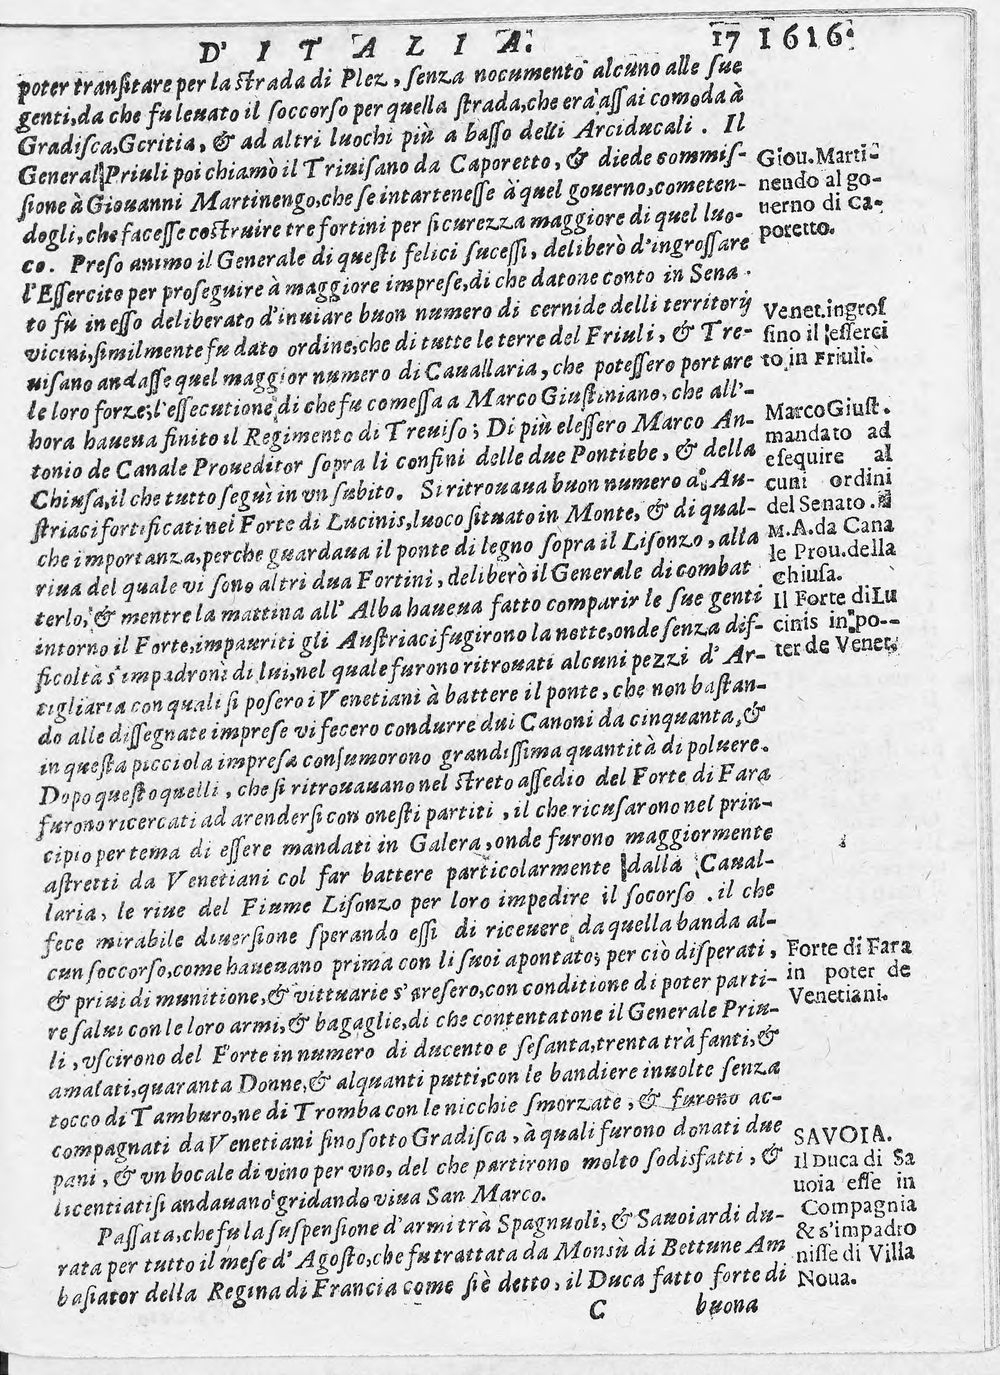 D' I T A L I A. 17 1616.
poter transitare per la strada di Plez, senza nocumento alcuno alle sue
genti, da che fu leuato il soccorso per quella strada, che era assai comoda à
Gradisca, Gcritia, & ad altri luochi più a basso delli Arciducali. Il
General Priuli poi chiamò il Triuisano da Caporetto, & diede commis-
sione à Giouanni Martinengo, che se intartenesse à quel gouerno, cometen-
dogli, che facesse costruire tre fortini per sicurezza maggiore di quel luo-
co. Preso animo il Generale di questi felici sucessi, deliberò d'ingrossare
l'Essercito per proseguire à maggiore imprese, di che datone conto in Sena-
to fù in esso deliberato d'inuiare buon numero di cernide delli territorij
vicini, similmente fu dato ordine, che di tutte le terre del Friuli, & Tre-
uisano andasse quel maggior numero di Cauallaria, che potessero portare
le loro forze; l'essecutione di che fu comessa a Marco Giustiniano, che all'-
hora haueua finito il Regimento di Treuiso; Di più elessero Marco An-
tonio de Canale Proueditor sopra li confini delle due Pontiebe, & della
Chiusa, il che tutto seguì in vn subito. Si ritrouaua buon numero d' Au-
striaci fortificati nei Forte di Lucinis, luoco situato in Monte, & di qual-
che importanza, perche guardaua il ponte di legno sopra il Lisonzo, alla
riua del quale vi sono altri dua Fortini, deliberò il Generale di combat
terlo, & mentre la mattina all' Alba haueua fatto comparir le sue genti
intorno il Forte, impauriti gli Austriaci fugirono la notte, onde senza dif-
ficoltà s'impadronì di lui, nel quale furono ritrouati alcuni pezzi d' Ar-
tigliaria con quali si posero i Venetiani à battere il ponte, che non bastan-
do alle dissegnate imprese vi fecero condurre dui Canoni da cinquanta, &
in questa picciola impresa consumorono grandissima quantità di poluere.
Dopo questo quelli, che si ritrouauano nel streto assedio del Forte di Fara
furono ricercati ad arendersi con onesti partiti, il che ricusarono nel prin-
cipio per tema di essere mandati in Galera, onde furono maggiormente
astretti da Venetiani col far battere particolarmente dalla Caual-
laria, le riue del Fiume Lisonzo per loro impedire il socorso. il che
fece mirabile diuersione sperando essi di riceuere da quella banda al-
cun soccorso, come haueuano prima con li suoi apontato; per ciò disperati,
& priui di munitione, & vittuarie s'aresero, con conditione di poter parti-
re salui con le loro armi, & bagaglie, di che contentatone il Generale Priu-
li, vscirono del Forte in numero di ducento e sesanta, trenta trà fanti, &
amalati, quaranta Donne, & alquanti putti, con le bandiere inuolte senza
tocco di Tamburo, ne di Tromba con le nicchie smorzate, & furono ac-
compagnati da Venetiani sino sotto Gradisca, à quali furono donati due
pani, & vn bocale di vino per vno, del che partirono molto sodisfatti, &
licentiatisi andauano gridando viua San Marco.
Passata, che fu la suspensione d'armi trà Spagnuoli, & Sauoiardi du-
rata per tutto il mese d' Agosto, che fu trattata da Monsù di Bettune Am
basiator della Regina di Francia come si è detto, il Duca fatto forte di
C buona
Giou. Marti-
nendo al go-
uerno di Ca-
poretto.
Venet. ingros
sino il esserci
to in Friuli.
Marco Giust.
mandato ad
esequire al
cuni ordini
del Senato.
M. A. da Cana
le Prou. della
Chiusa.
Il Forte di Lu
cinis in po--
ter de Venet.
Forte di Fara
in poter de
Venetiani.
SAVOIA.
Il Duca di Sa
uoia esse in
Compagnia
& s'impadro
nisse di Villa
Noua.